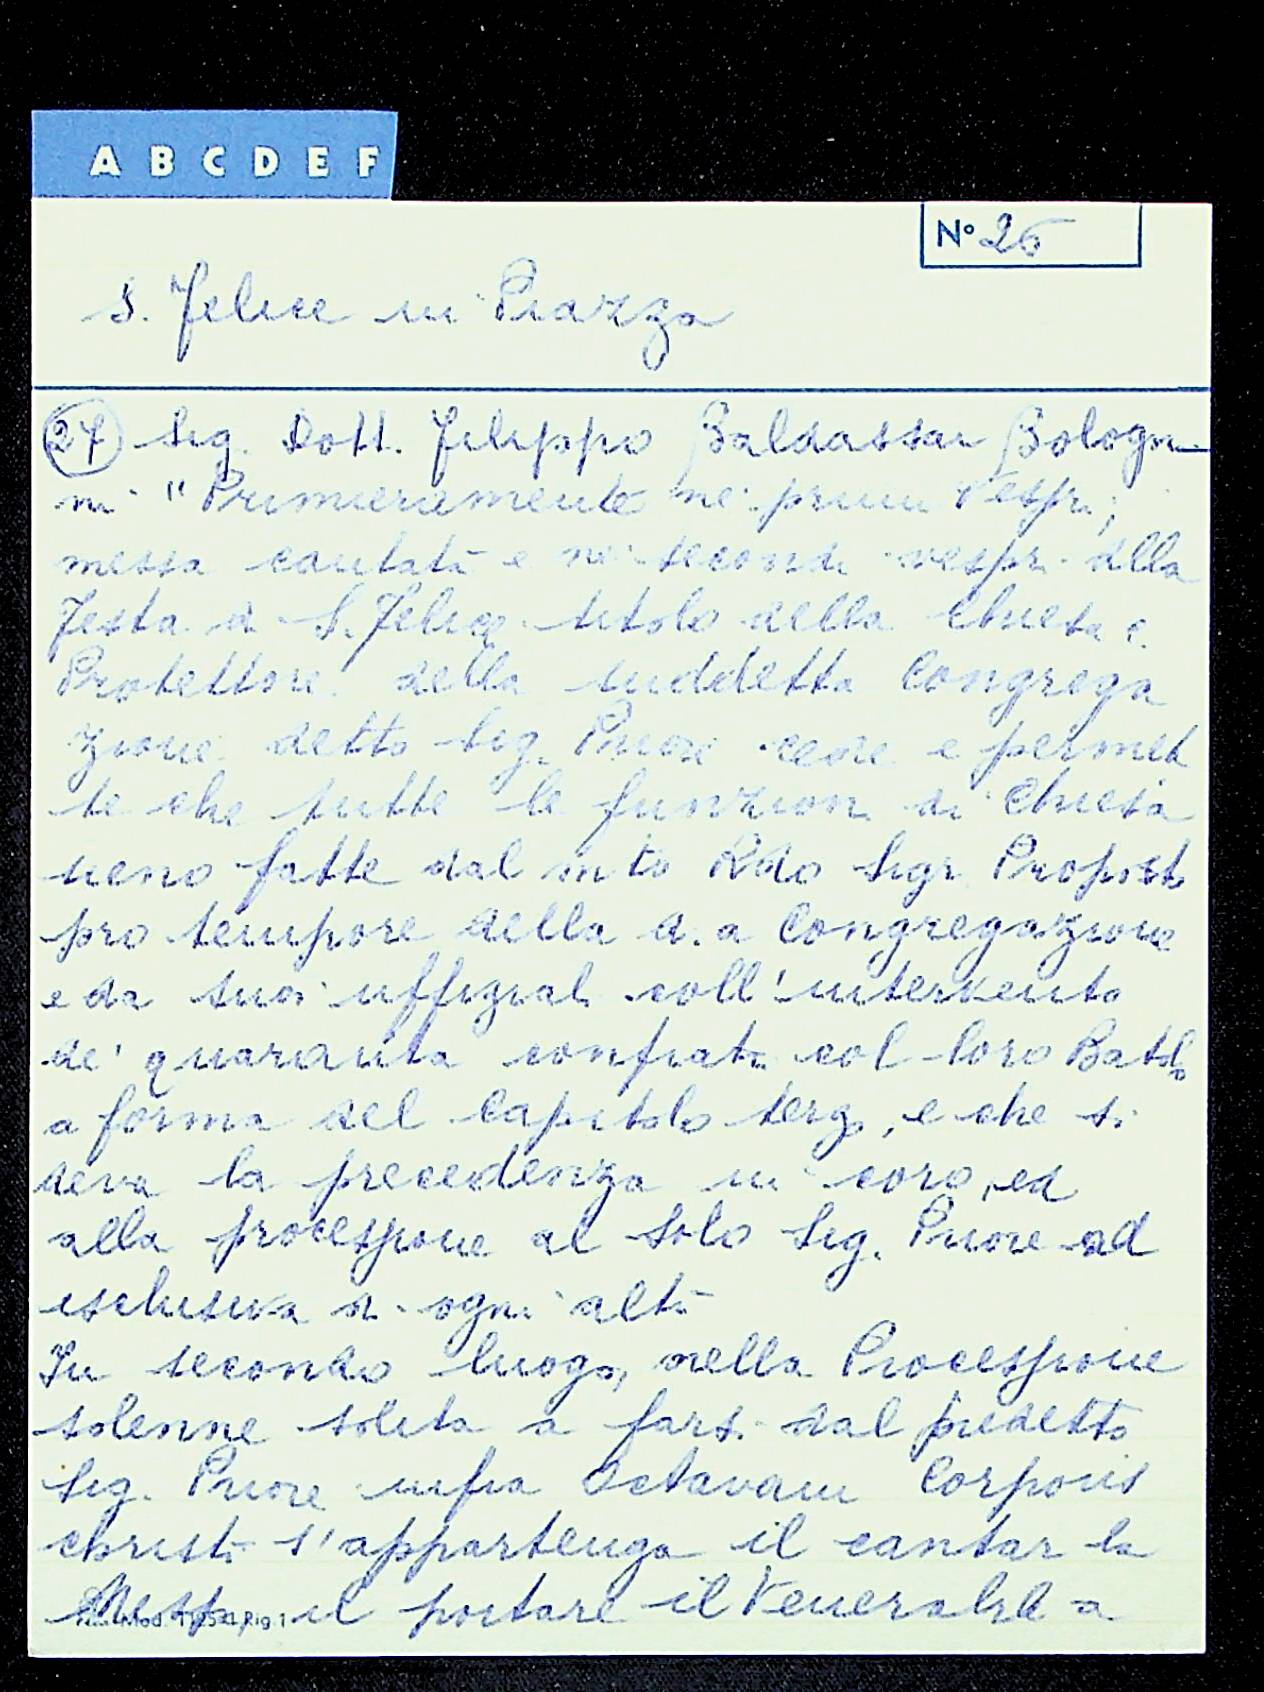 A B C D E F
N° 26
S. Felice in Piazza
27 Sig. Dott. Filippo Baldassar Bologni
ni " Primieramente ne' primi Vespri,
messa cantata e ne' secondi vespri della
Festa di S. Felice titolo della Chiesa e
Protettore della suddetta Congrega
zione detto Sig. Priore cede e permet
te che tutte le funzioni di Chiesa
sieno fatte dal mto Rdo Sigr Proposto
pro tempore della d.a Congregazione
e da suoi uffiziali coll'intervento
de' quaranta confrati col loro
a forma del Capitolo terzo, e che si
deva la precedenza in coro, ed
alla processione al solo Sig. Priore ad
esclusiva di ogni altro
In secondo luogo, nella Processione
solenne solita a farsi dal predetto
Sig. Priore infra Octavam Corporis
Christi s'appartenga il cantar la
Messa, il portare il Venerabile a
Mod. Rig. 1